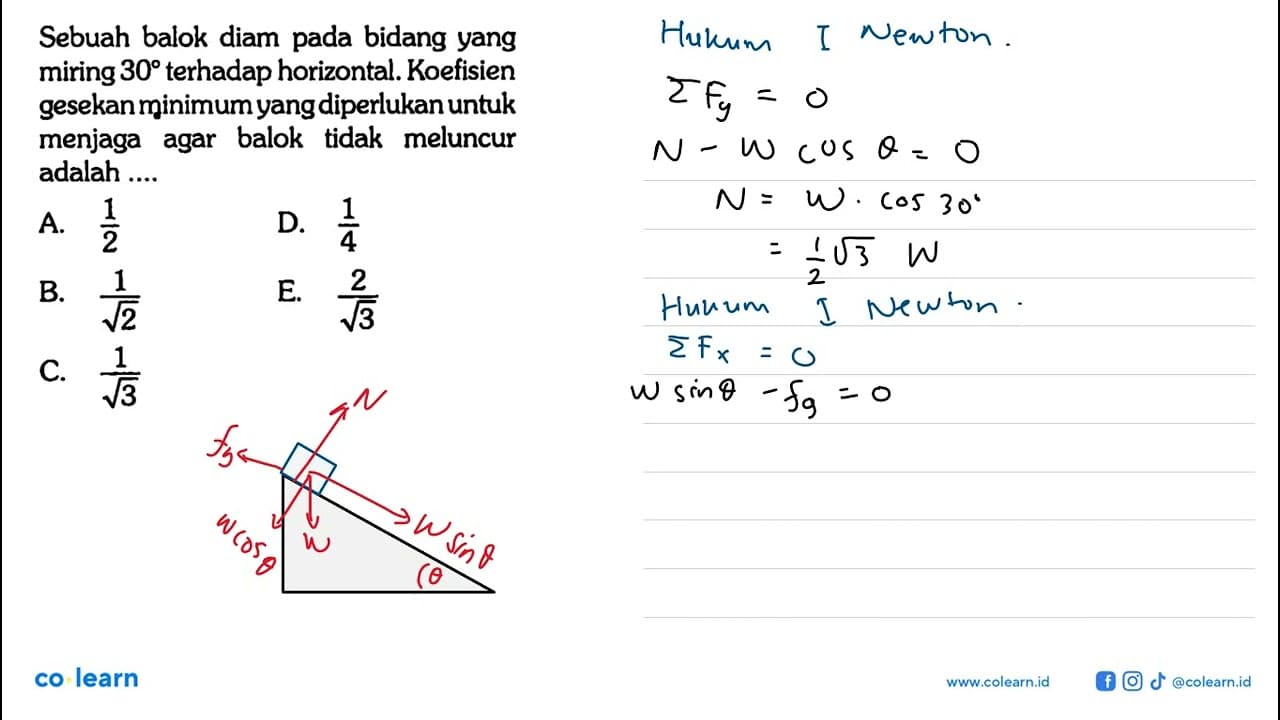 Sebuah balok diam pada bidang yang
miring 30° terhadap horizontal. Koefisien
gesekan minimum yang diperlukan untuk
menjaga agar balok tidak meluncur
adalah ....
A. 1/2
D. 1/4
B. 1/√2
E. 2/√3
C. 1/√3
N
fg
W cos θ
W
W sin θ
θ
Hukum I Newton.
ΣFy = 0
N - W cos θ = 0
N = W. cos 30°
= 1/2 √3 W
Hukum I Newton.
ΣFx = 0
W sin θ - fg = 0
co learn
www.colearn.id
@colearn.id